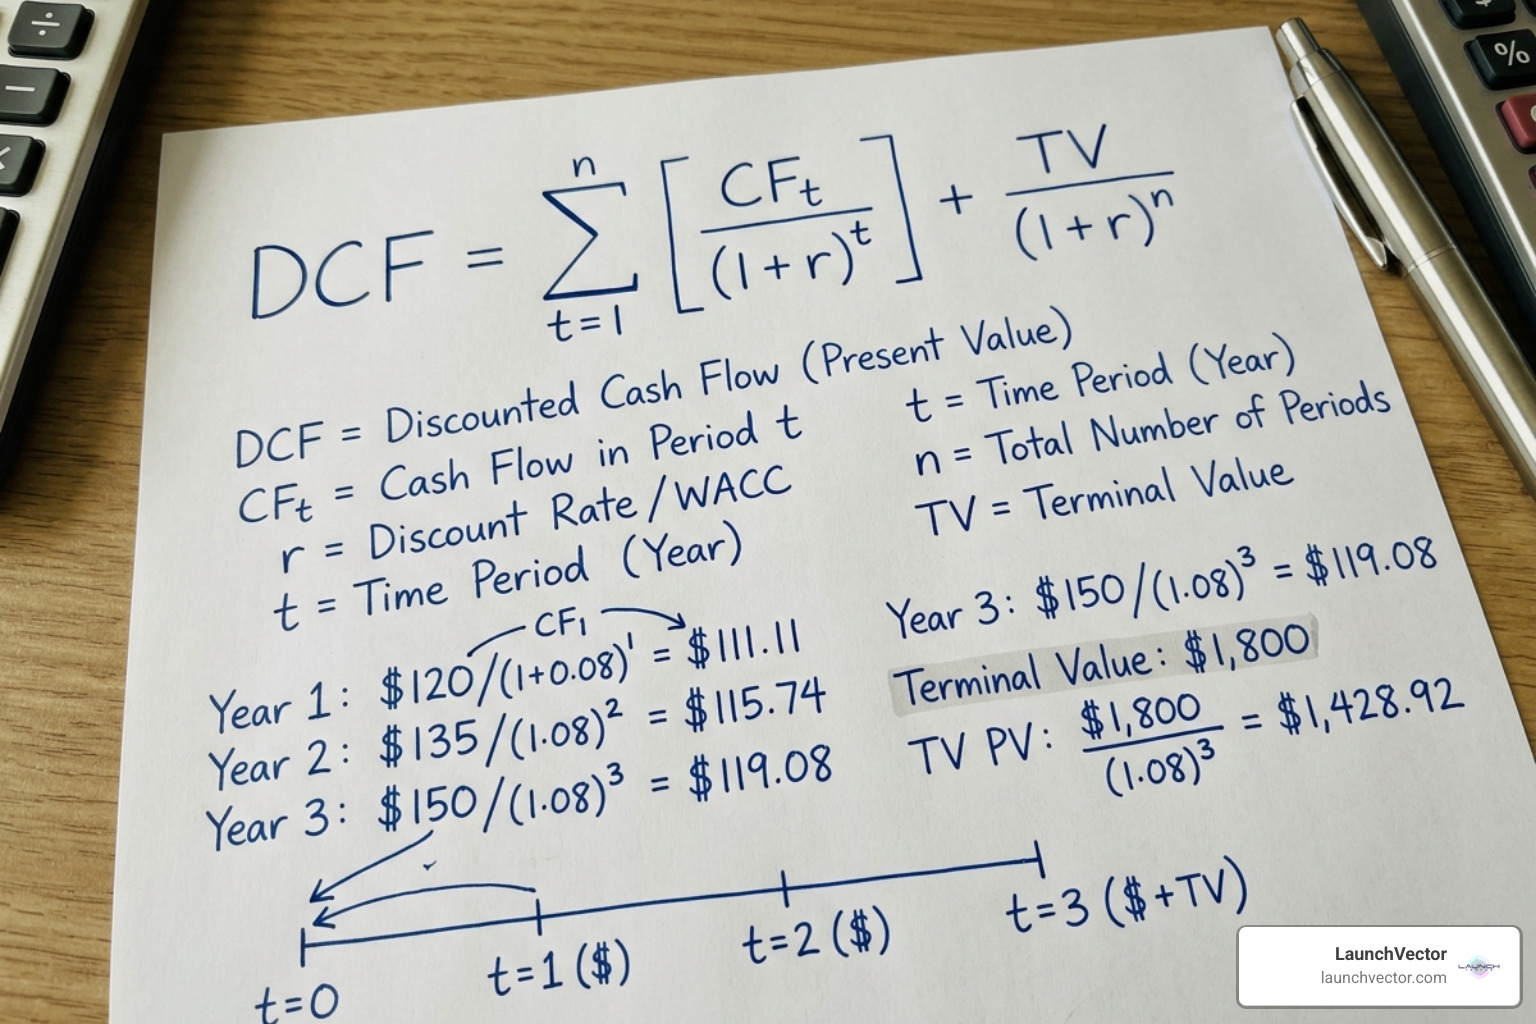 DCF = n Σ t=1 [ CFt / (1+r)^t ] + TV / (1+r)^n
DCF = Discounted Cash Flow (Present Value)
CFt = Cash Flow in Period t
r = Discount Rate/WACC
t = Time Period (Year)
t = Time Period (Year)
n = Total Number of Periods
TV = Terminal Value
CF1
Year 1: $120/(1+0.08)^1 = $111.11
Year 2: $135/(1.08)^2 = $115.74
Year 3: $150/(1.08)^3 = $119.08
Year 3: $150/(1.08)^3 = $119.08
Terminal Value: $1,800
TV PV: $1,800 / (1.08)^3 = $1,428.92
t=0
t=1 ($)
t=2 ($)
t=3 ($+TV)
÷
−
%
LaunchVector
launchvector.com
LAUNCH